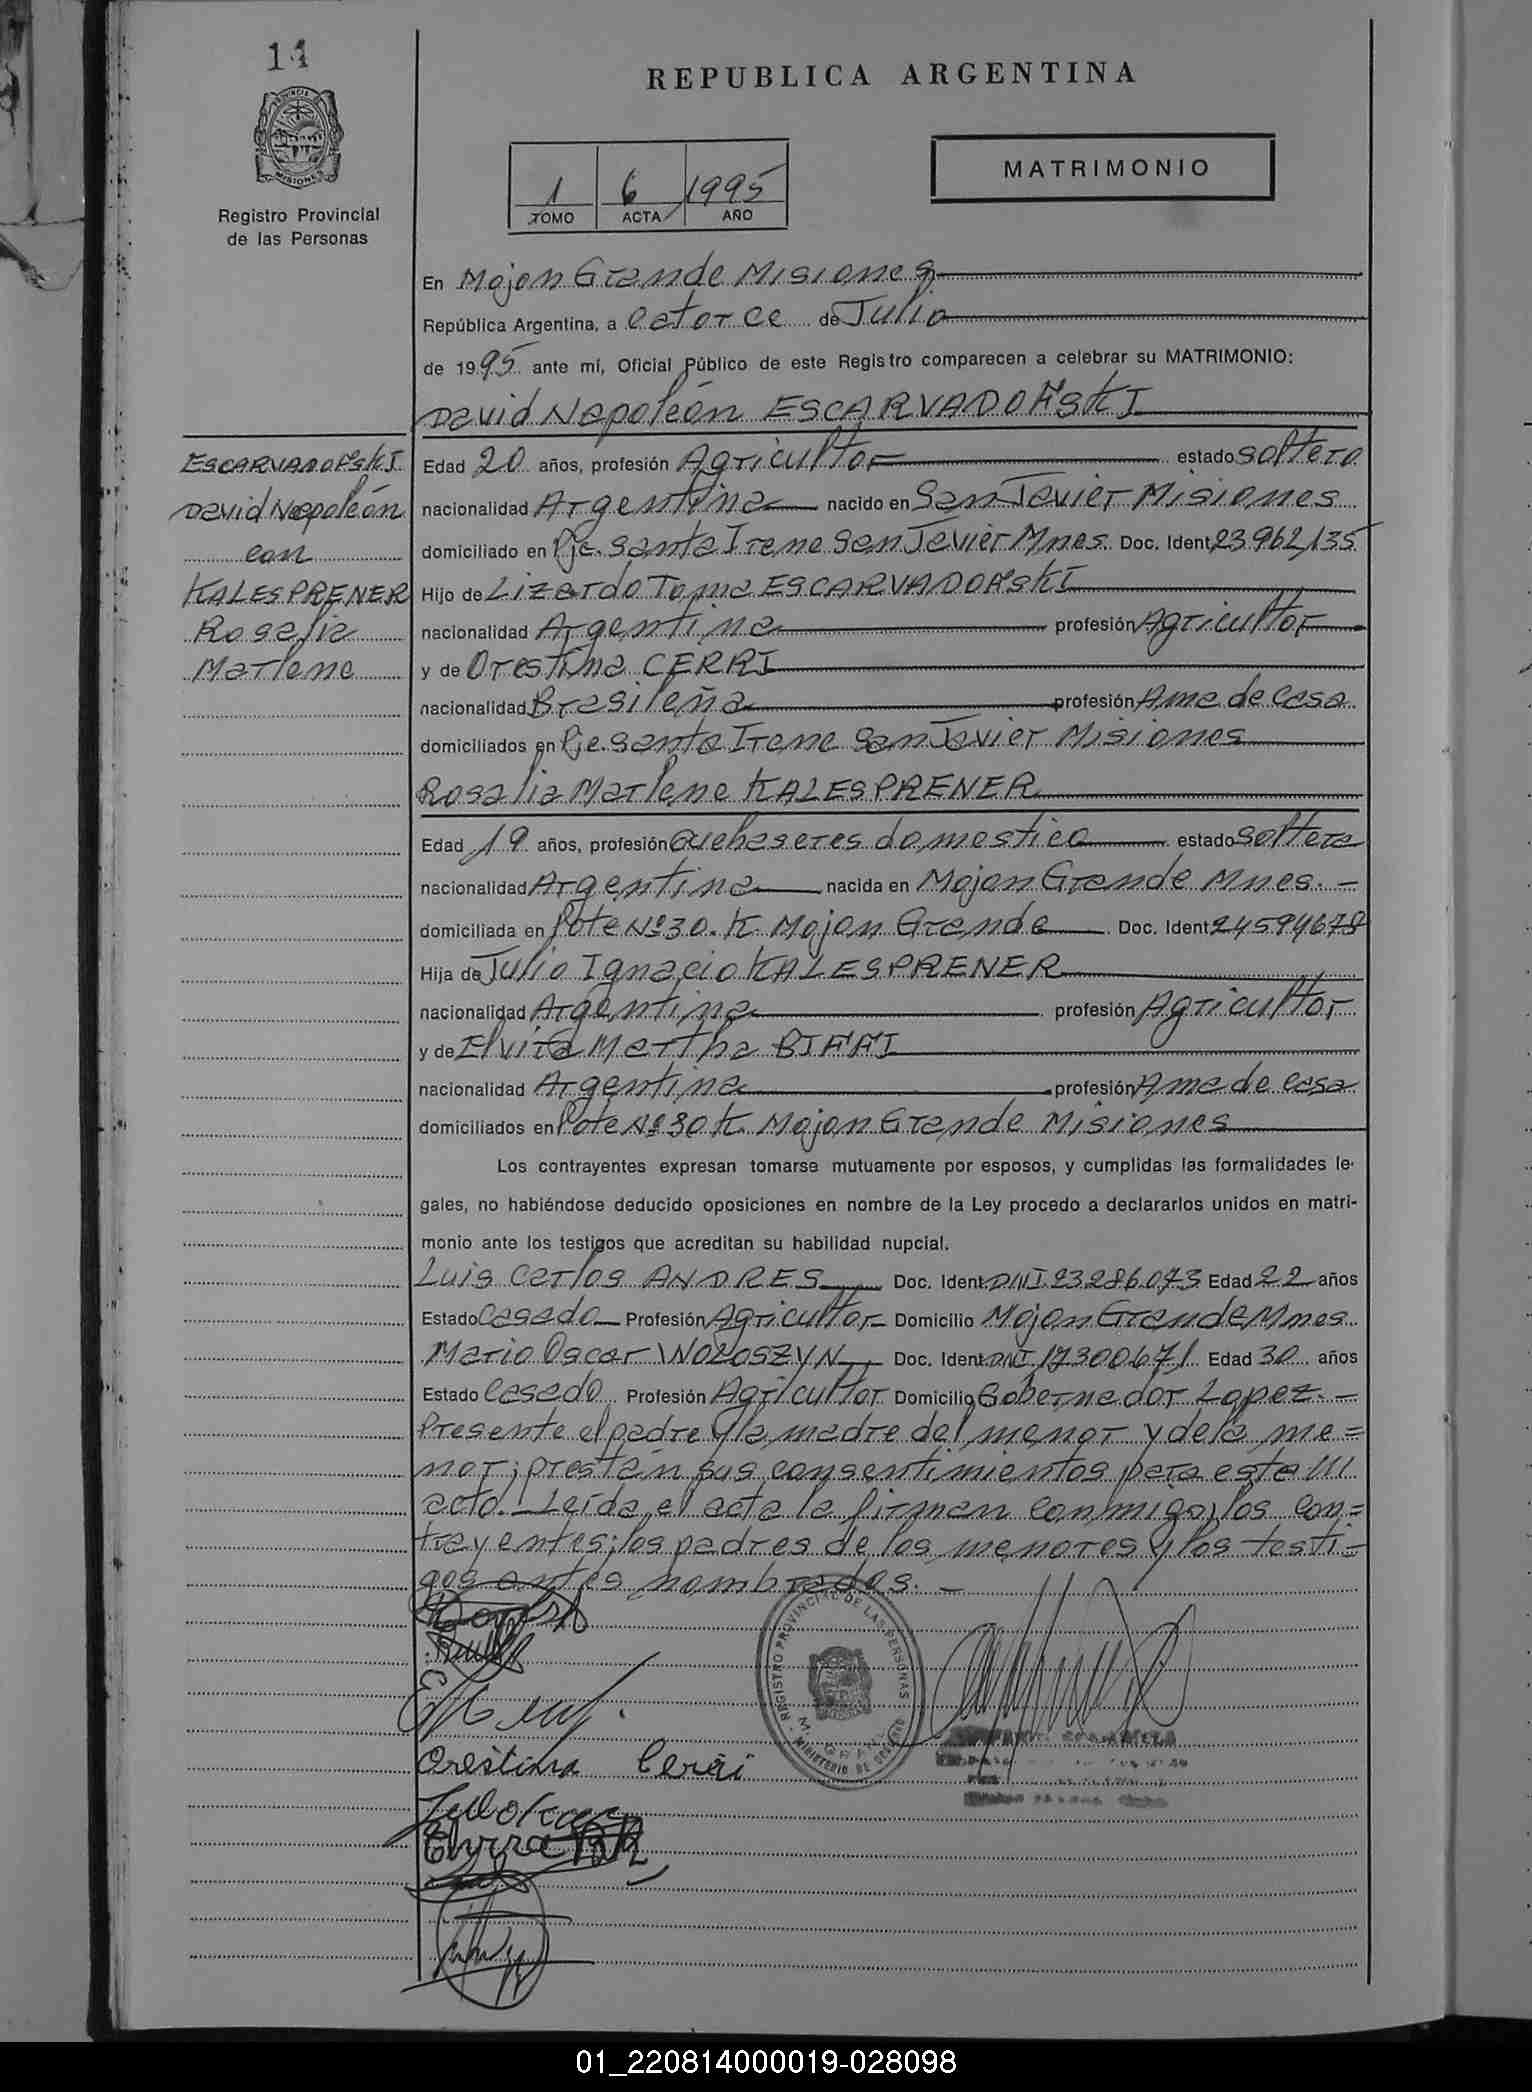 14
PROVINCIA DE
MISIONES
Registro Provincial
de las Personas
REPUBLICA ARGENTINA
1 6 1995
TOMO ACTA AÑO
MATRIMONIO
En Mojon Grande Misiones
República Argentina, a catorce de Julio
de 1995 ante mí, Oficial Público de este Registro comparecen a celebrar su MATRIMONIO:
David Napoleón ESCARVADOFSKI
ESCARVADOFSKI
David Napoleón
con
KALESPRENER
Rosalia
Marlene
Edad 20 años, profesión Agricultor estado soltero
nacionalidad Argentina nacido en San Javier Misiones
domiciliado en Pje. Santa Irene San Javier Mnes. Doc. Ident. 23.962.135
Hijo de Lizardo Toma ESCARVADOFSKI
nacionalidad Argentina profesión Agricultor
y de Orestina CERRI
nacionalidad Brasileña profesión Ama de casa
domiciliados en Pje. Santa Irene San Javier Misiones
Rosalia Marlene KALESPRENER
Edad 19 años, profesión Quehaseres domestico estado soltera
nacionalidad Argentina nacida en Mojon Grande Mnes. -
domiciliada en Lote Nº 30. K. Mojon Grande Doc. Ident. 24594678
Hija de Julio Ignacio KALESPRENER
nacionalidad Argentina profesión Agricultor
y de Elvira Martha BIFFI
nacionalidad Argentina profesión Ama de casa
domiciliados en Lote Nº 30 K. Mojon Grande Misiones
Los contrayentes expresan tomarse mutuamente por esposos, y cumplidas las formalidades le-
gales, no habiéndose deducido oposiciones en nombre de la Ley procedo a declararlos unidos en matri-
monio ante los testigos que acreditan su habilidad nupcial.
Luis Carlos ANDRES Doc. Ident. DNI 23286073 Edad 22 años
Estado Casado Profesión Agricultor Domicilio Mojon Grande Mnes.
Mario Oscar WOLOSZYN Doc. Ident. DNI 17300671 Edad 30 años
Estado Casado Profesión Agricultor Domicilio Gobernador Lopez. -
Presente el padre y la madre del menor y de la me=
nor; prestan sus consentimientos para este ///
acto.- Leída el acta la firman conmigo, los con=
trayentes; los padres de los menores y los testi=
gos antes nombrados. -
REGISTRO PROVINCIAL DE LAS PERSONAS
MINISTERIO DE GOBIERNO
Orestina Cerri
Elvira
01_220814000019-028098